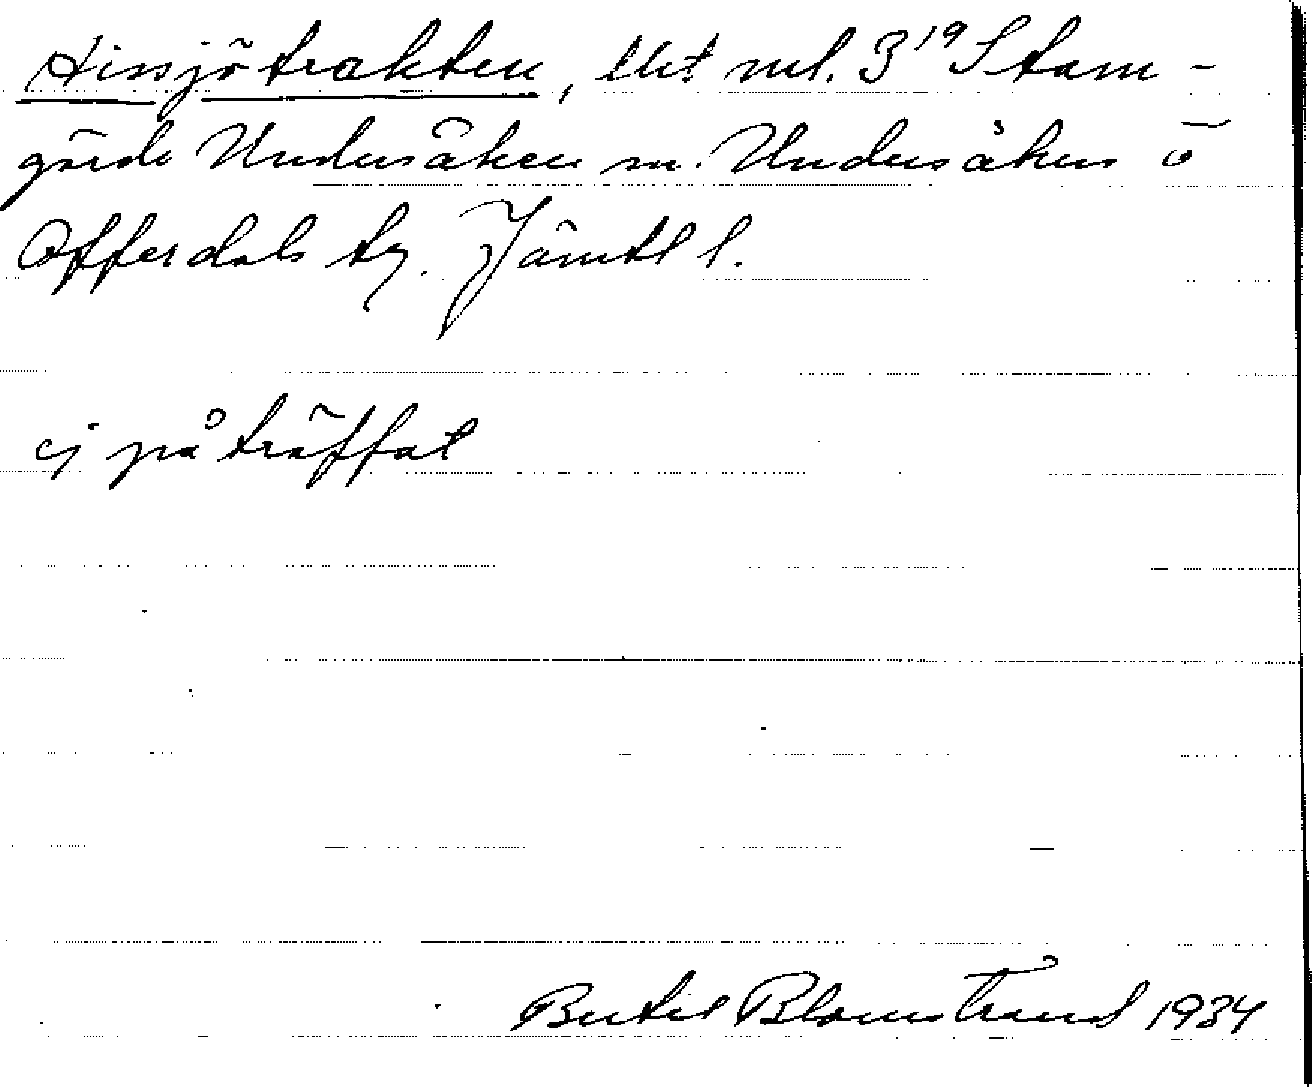 Hissjötrakten, Utö nr. 3¹⁹ Stam-
gärde Undersåker sn. Undersåkers o
Offerdals tg. Jämtl l.
ej påträffat
Bertil Blomstrand 1934